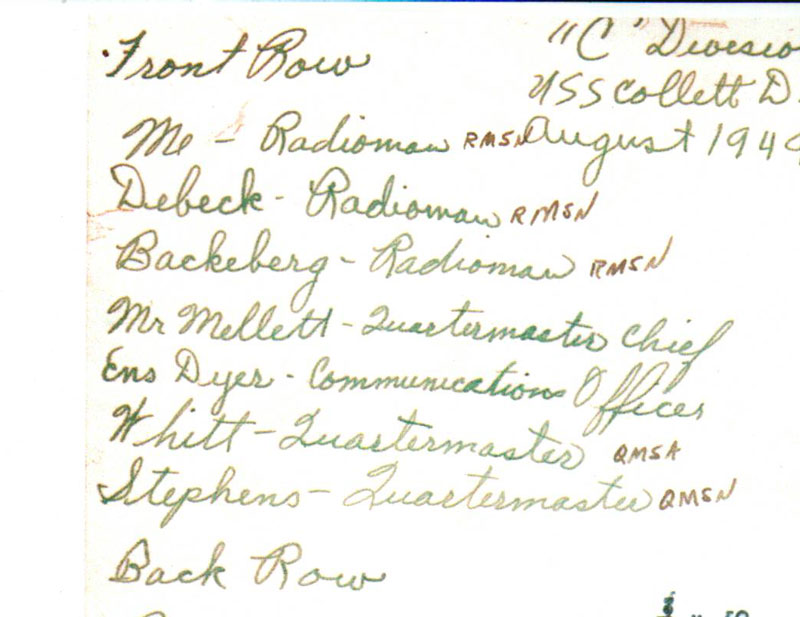 Front Row
"C" Divisio
USS Collett D.
August 194
Me - Radioman RMSN
Debeck - Radioman RMSN
Backeberg - Radioman RMSN
Mr Mellett - Quartermaster Chief
Ens Dyer - Communications Officer
Whitt - Quartermaster QMSA
Stephens - Quartermaster QMSN
Back Row